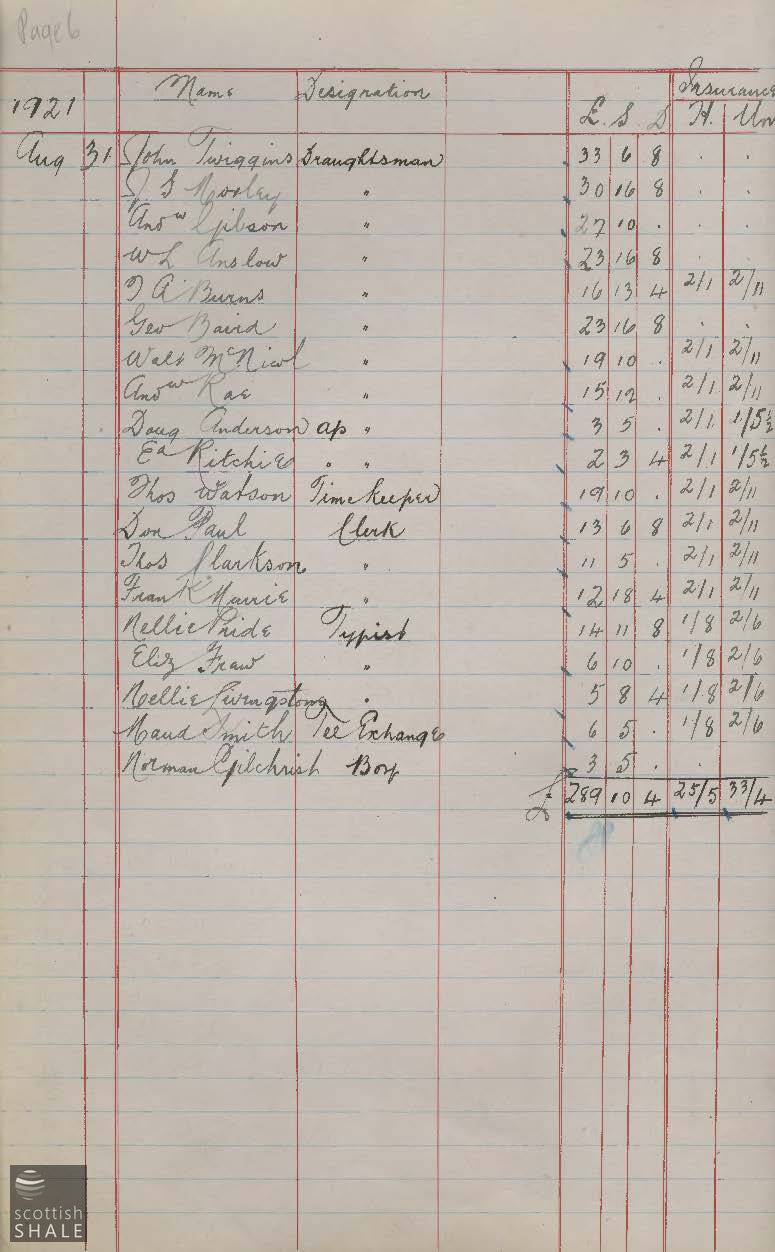 Page 6
Name Designation Insurance
1921 £. S. D H. Un
Aug 31 John Twiggins Draughtsman 33 6 8 . .
J S Morley " 30 16 8 . .
Andw Gibson " 27 10 . . .
W L Anslow " 23 16 8 . .
T A Burns " 16 13 4 2/1 2/11
Geo Baird " 23 16 8 . .
Walt McNicol " 19 10 . 2/1 2/11
Andw Rae " 15 12 . 2/1 2/11
Doug Anderson ap " 3 5 . 2/1 1/5½
Ed Ritchie " " 2 3 4 2/1 1/5½
Thos Watson Timekeeper 19 10 . 2/1 2/11
Don Paul Clerk 13 6 8 2/1 2/11
Thos Clarkson " 11 5 . 2/1 2/11
Frank Marrie " 12 18 4 2/1 2/11
Nellie Pride Typist 14 11 8 1/8 2/6
Eliz Fraw " 6 10 . 1/8 2/6
Nellie Livingstone " 5 8 4 1/8 2/6
Maud Smith Tel Exchange 6 5 . 1/8 2/6
Norman Gilchrist Boy 3 5 . .
£ 289 10 4 25/5 33/4
scottish
SHALE